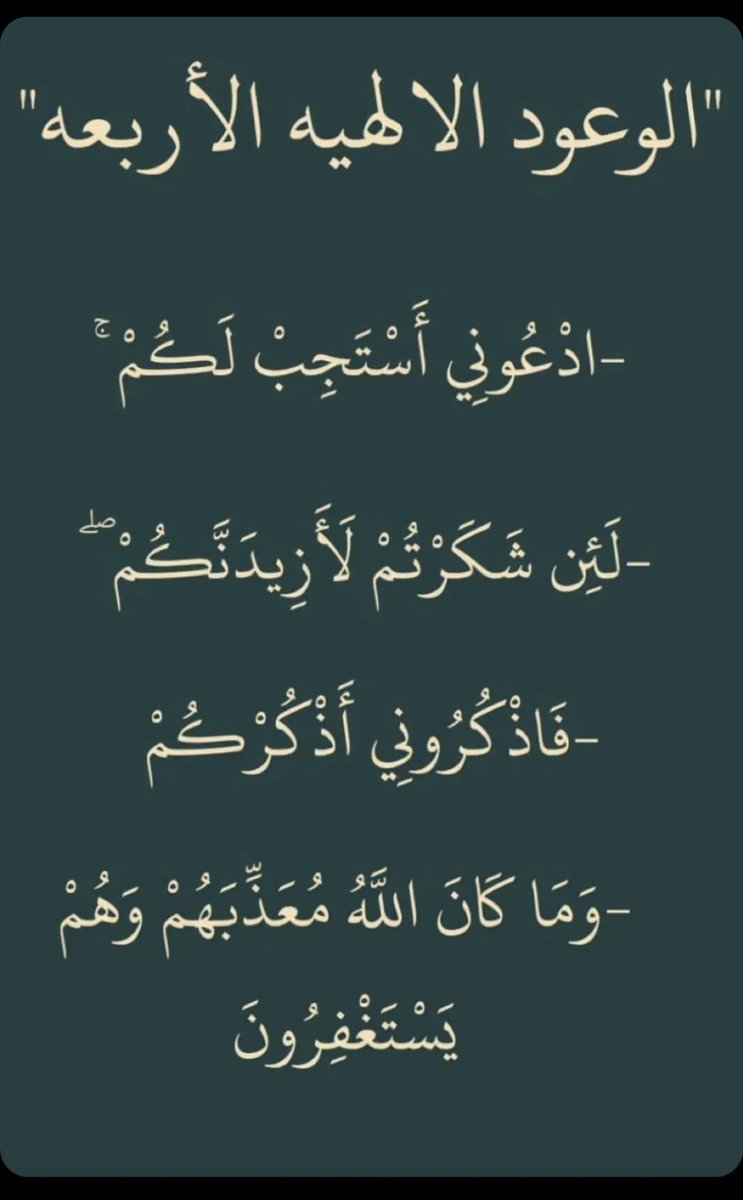 "الوعود الالهيه الأربعه"
-ادْعُونِي أَسْتَجِبْ لَكُمْ ۚ
-لَئِن شَكَرْتُمْ لَأَزِيدَنَّكُمْ ۖ
-فَاذْكُرُونِي أَذْكُرْكُمْ
-وَمَا كَانَ اللَّهُ مُعَذِّبَهُمْ وَهُمْ
يَسْتَغْفِرُونَ